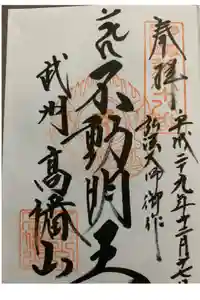 奉拝
平成二十九年十二月十七日
弘法大師御作
不動明王
武州
高幡山